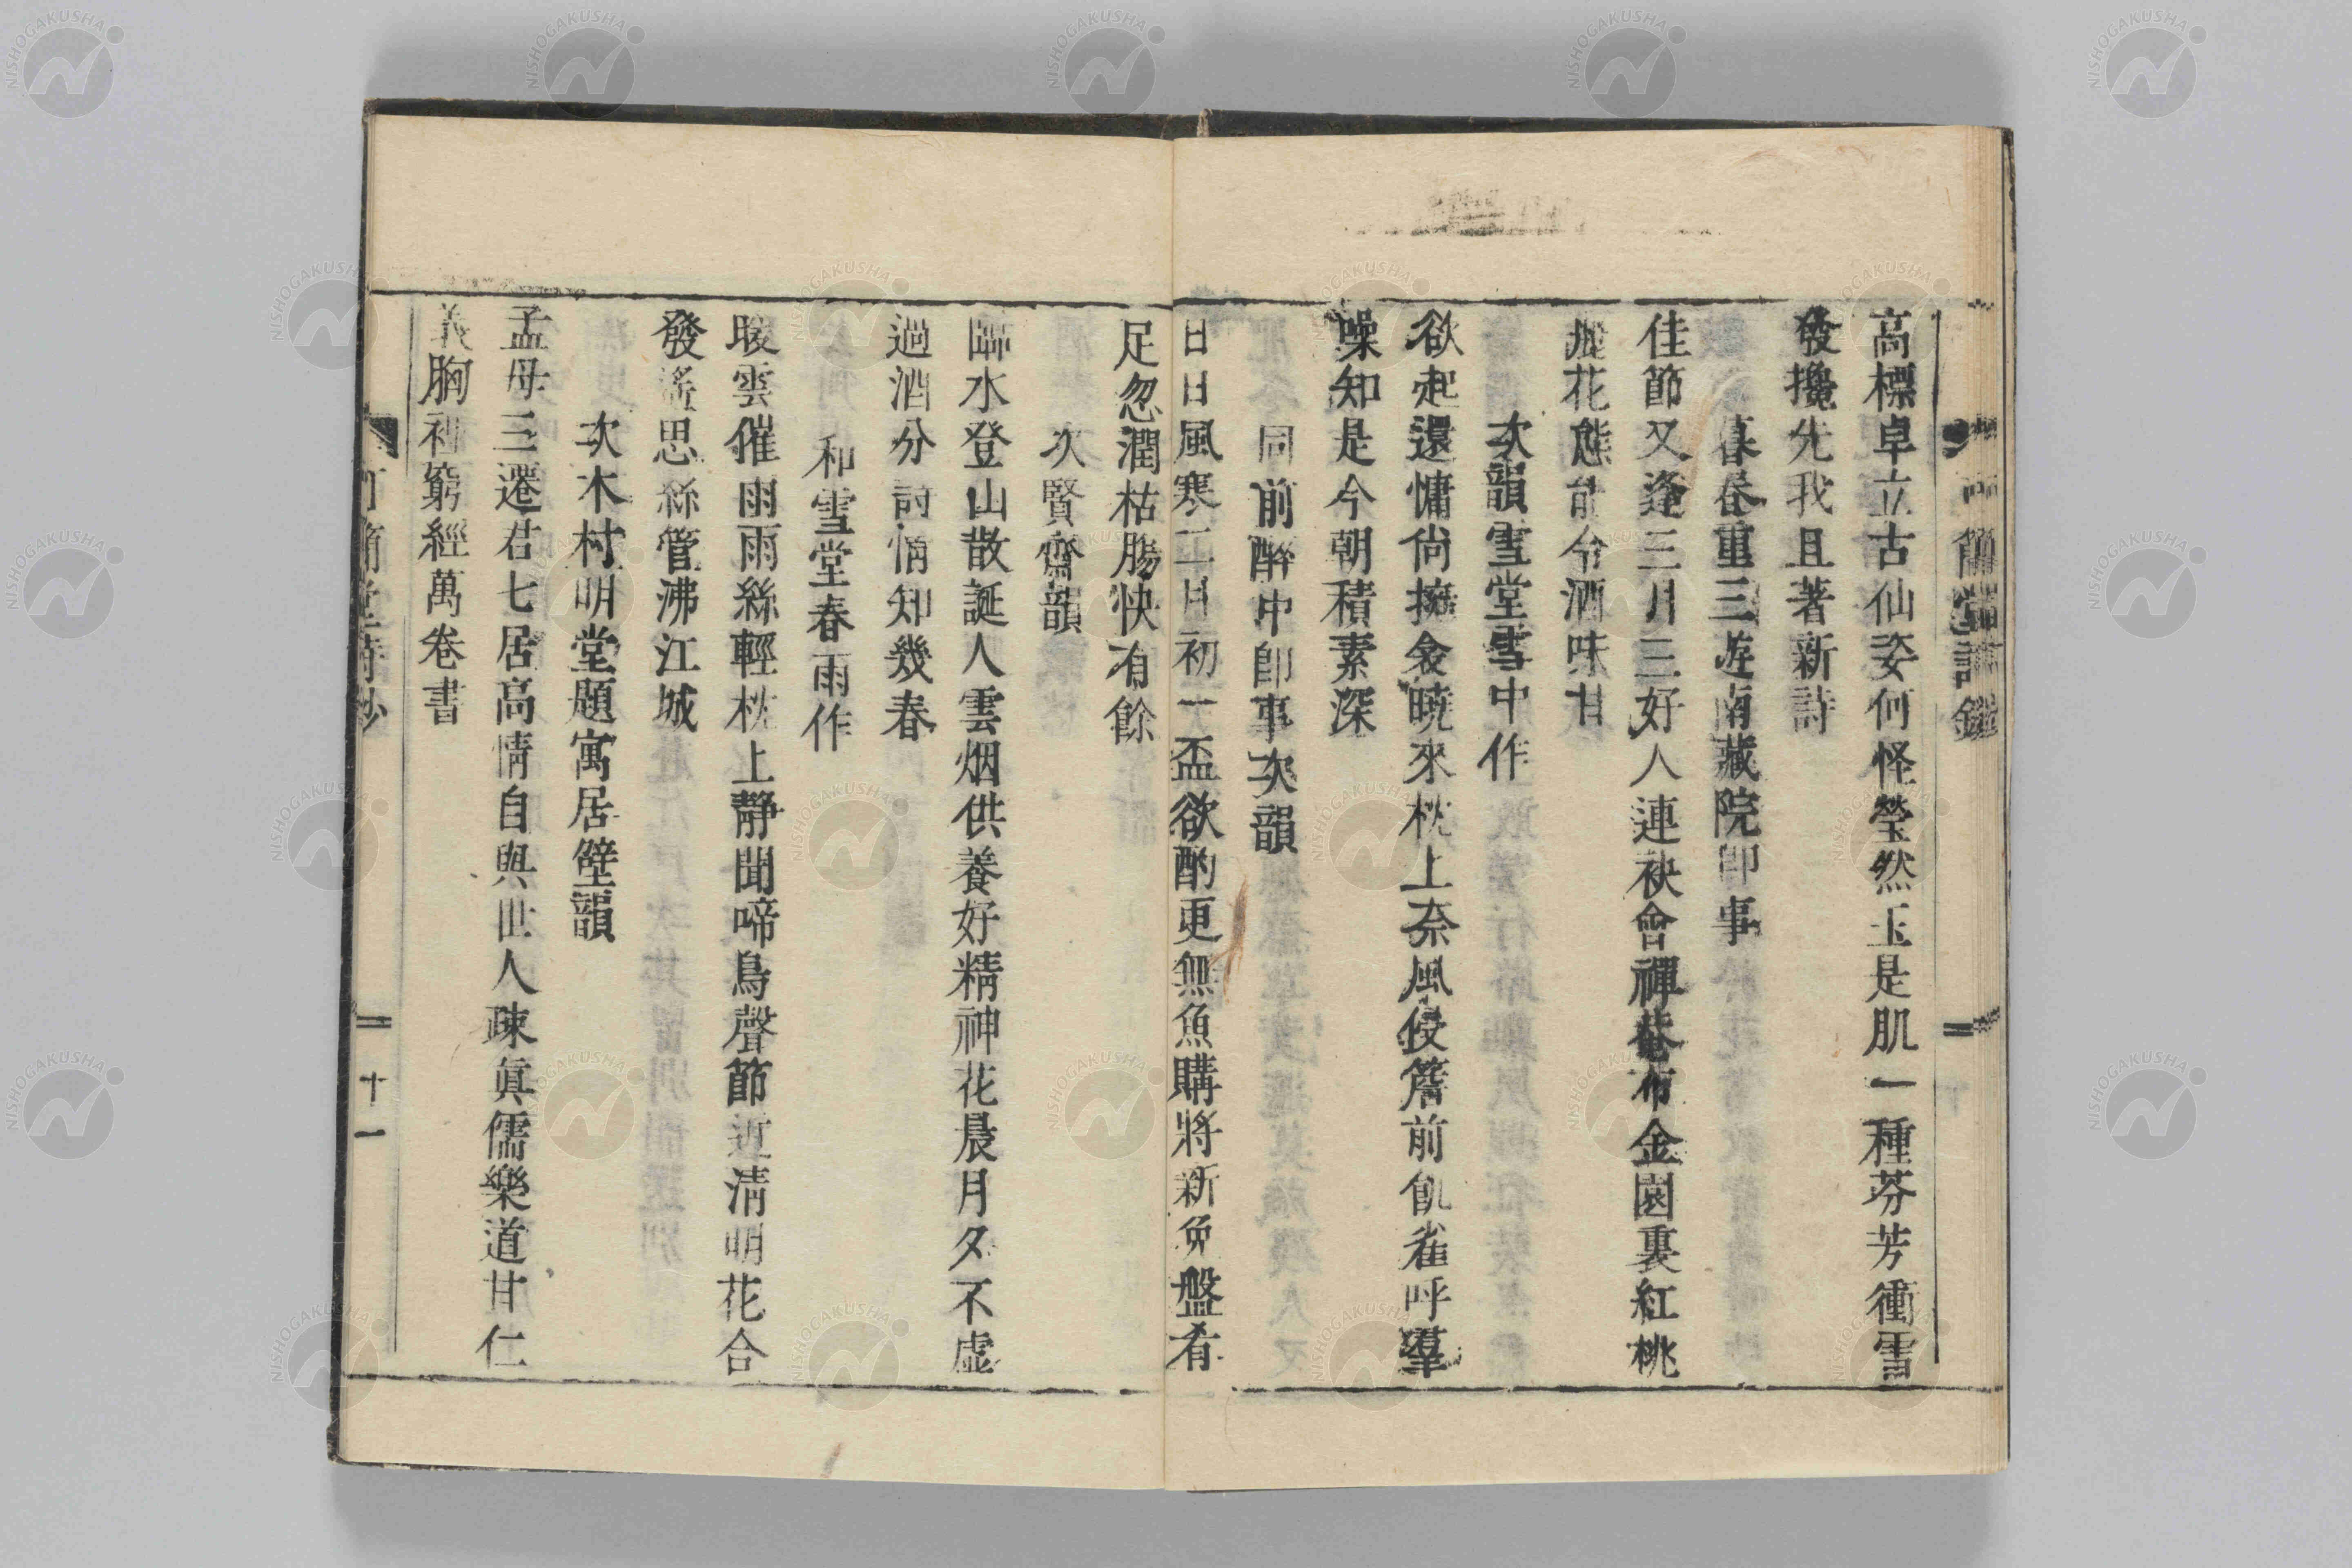 高標卓立古仙姿何怪瑩然玉是肌一種芬芳衝雪
發攙先我且著新詩
暮春重三遊南藏院即事
佳節又逢三月三好人連袂會禪菴布金園裏紅桃
花態能令酒味甘
次韻雪堂雪中作
欲起還慵尚擁衾曉來枕上奈風侵簷前飢雀呼羣
噪知是今朝積素深
同前醉中即事次韻
日日風寒二月初一盃欲酌更無魚購將新兔盤肴
足忽潤枯腸快有餘
次賢齋韻
臨水登山散誕人雲烟供養好精神花晨月夕不虛
過酒分詩情知幾春
和雪堂春雨作
暖雲催雨雨絲輕枕上靜聞啼鳥聲節近清明花合
發遙思絲管沸江城
次木村明堂題寓居壁韻
孟母三遷君七居高情自與世人疎眞儒樂道甘仁
義胸裡窮經萬卷書
堂詩鈔
十一
NISHOGAKUSHA